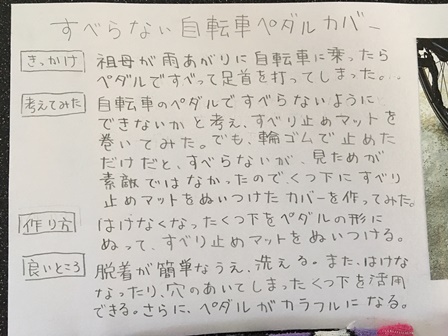 すべらない自転車ペダルカバー
きっかけ 祖母が雨あがりに自転車に乗ったら
ペダルですべって足首を打ってしまった。
考えてみた 自転車のペダルですべらないように
できないかと考え、すべり止めマットを
巻いてみた。でも、輪ゴムで止めた
だけだと、すべらないが、見ためが
素敵ではなかったので、くつ下にすべり
止めマットをぬいつけたカバーを作ってみた。
作り方 はけなくなったくつ下をペダルの形に
ぬって、すべり止めマットをぬいつける。
良いところ 脱着が簡単なうえ、洗える。また、はけな
くなったり、穴のあいてしまったくつ下を活用
できる。さらに、ペダルがカラフルになる。